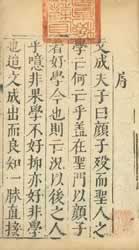 序
文成夫子曰顏子歿而聖人之
學亡何亡乎盖在聖門以顏子
為好學今也則亡况以後之人
乎噫非果學不好抑亦好非學
也迨文成出而良知一脉直接